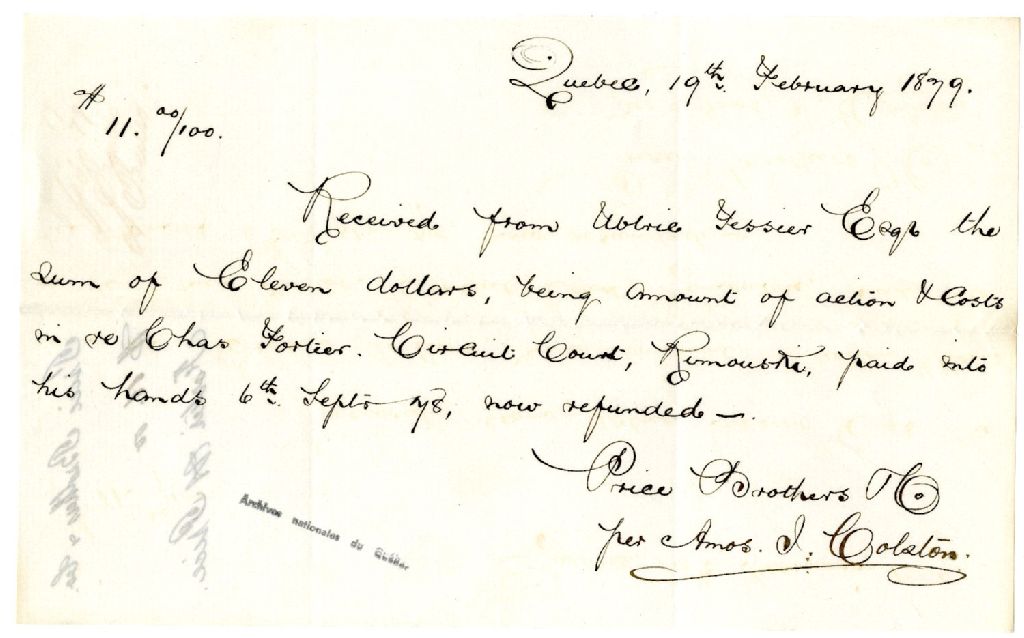 Quebec, 19th. February 1879.
$11. 00/100.
Received from Ulric Tessier Esqr the
sum of Eleven dollars, being amount of action & Costs
in re Chas Fortier. Circuit Court, Rimouski, paid into
his hands 6th. Septr 78, now refunded —.
Price Brothers & Co
per Amos. J. Colston.
Archives nationales du Québec